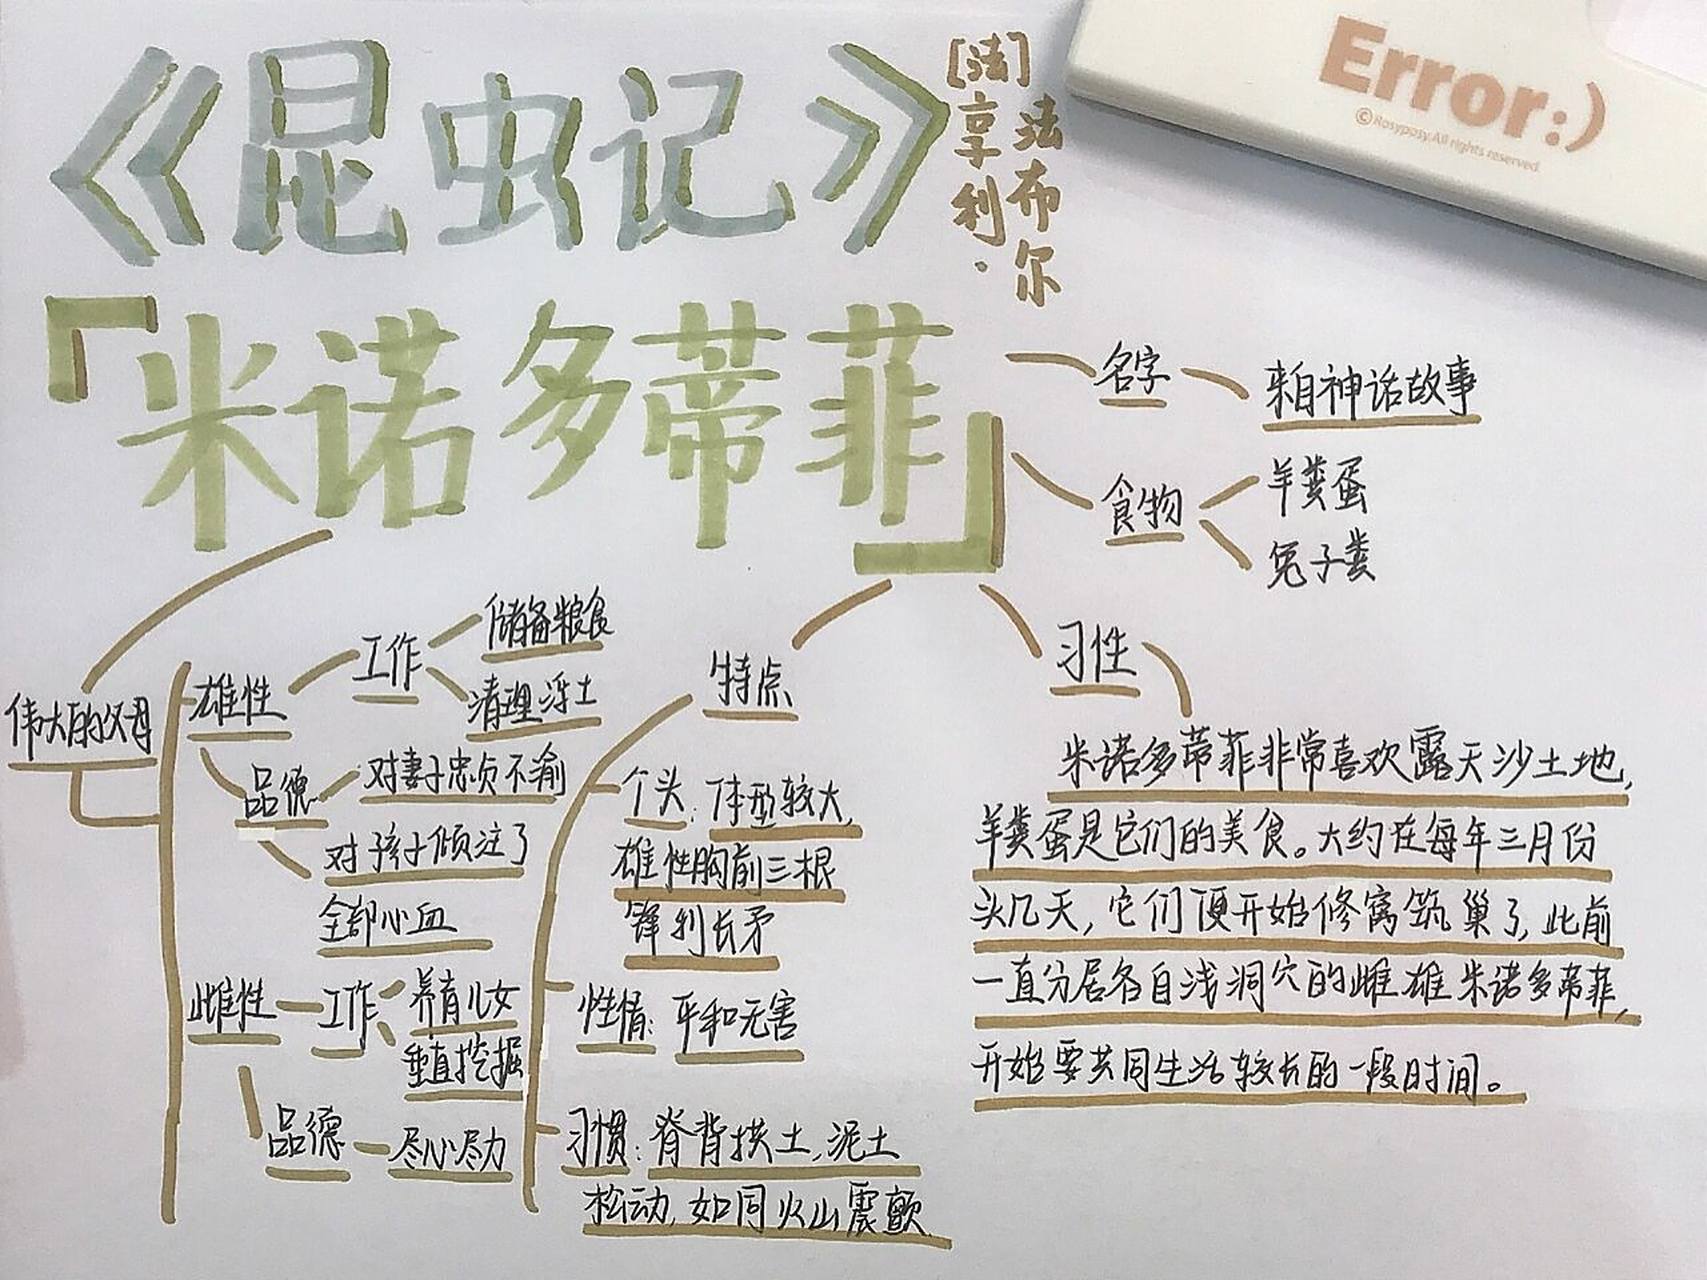 《昆虫记》
[法]
享利·
法布尔
Error:)
©Rosyposy.All rights reserved.
「米诺多蒂菲」
名字
来自神话故事
食物
羊粪蛋
兔子粪
习性
米诺多蒂菲非常喜欢露天沙土地,
羊粪蛋是它们的美食。大约在每年三月份
头几天,它们便开始修窝筑巢了,此前
一直分居各自浅洞穴的雌雄米诺多蒂菲,
开始要共同生活较长的一段时间。
特点
个头:体型较大,
雄性胸前三根
锋利长矛
性情:平和无害
习惯:脊背拱土,泥土
松动,如同火山震颤
伟大的父母
雄性
工作
储备粮食
清理浮土
品德
对妻子忠贞不渝
对孩子倾注了
全部心血
雌性
工作
养育儿女
垂直挖掘
品德
尽心尽力